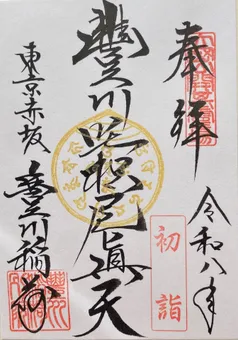 奉拝
令和八年
初詣
豊川吒枳尼真天
東京赤坂
豊川稲荷